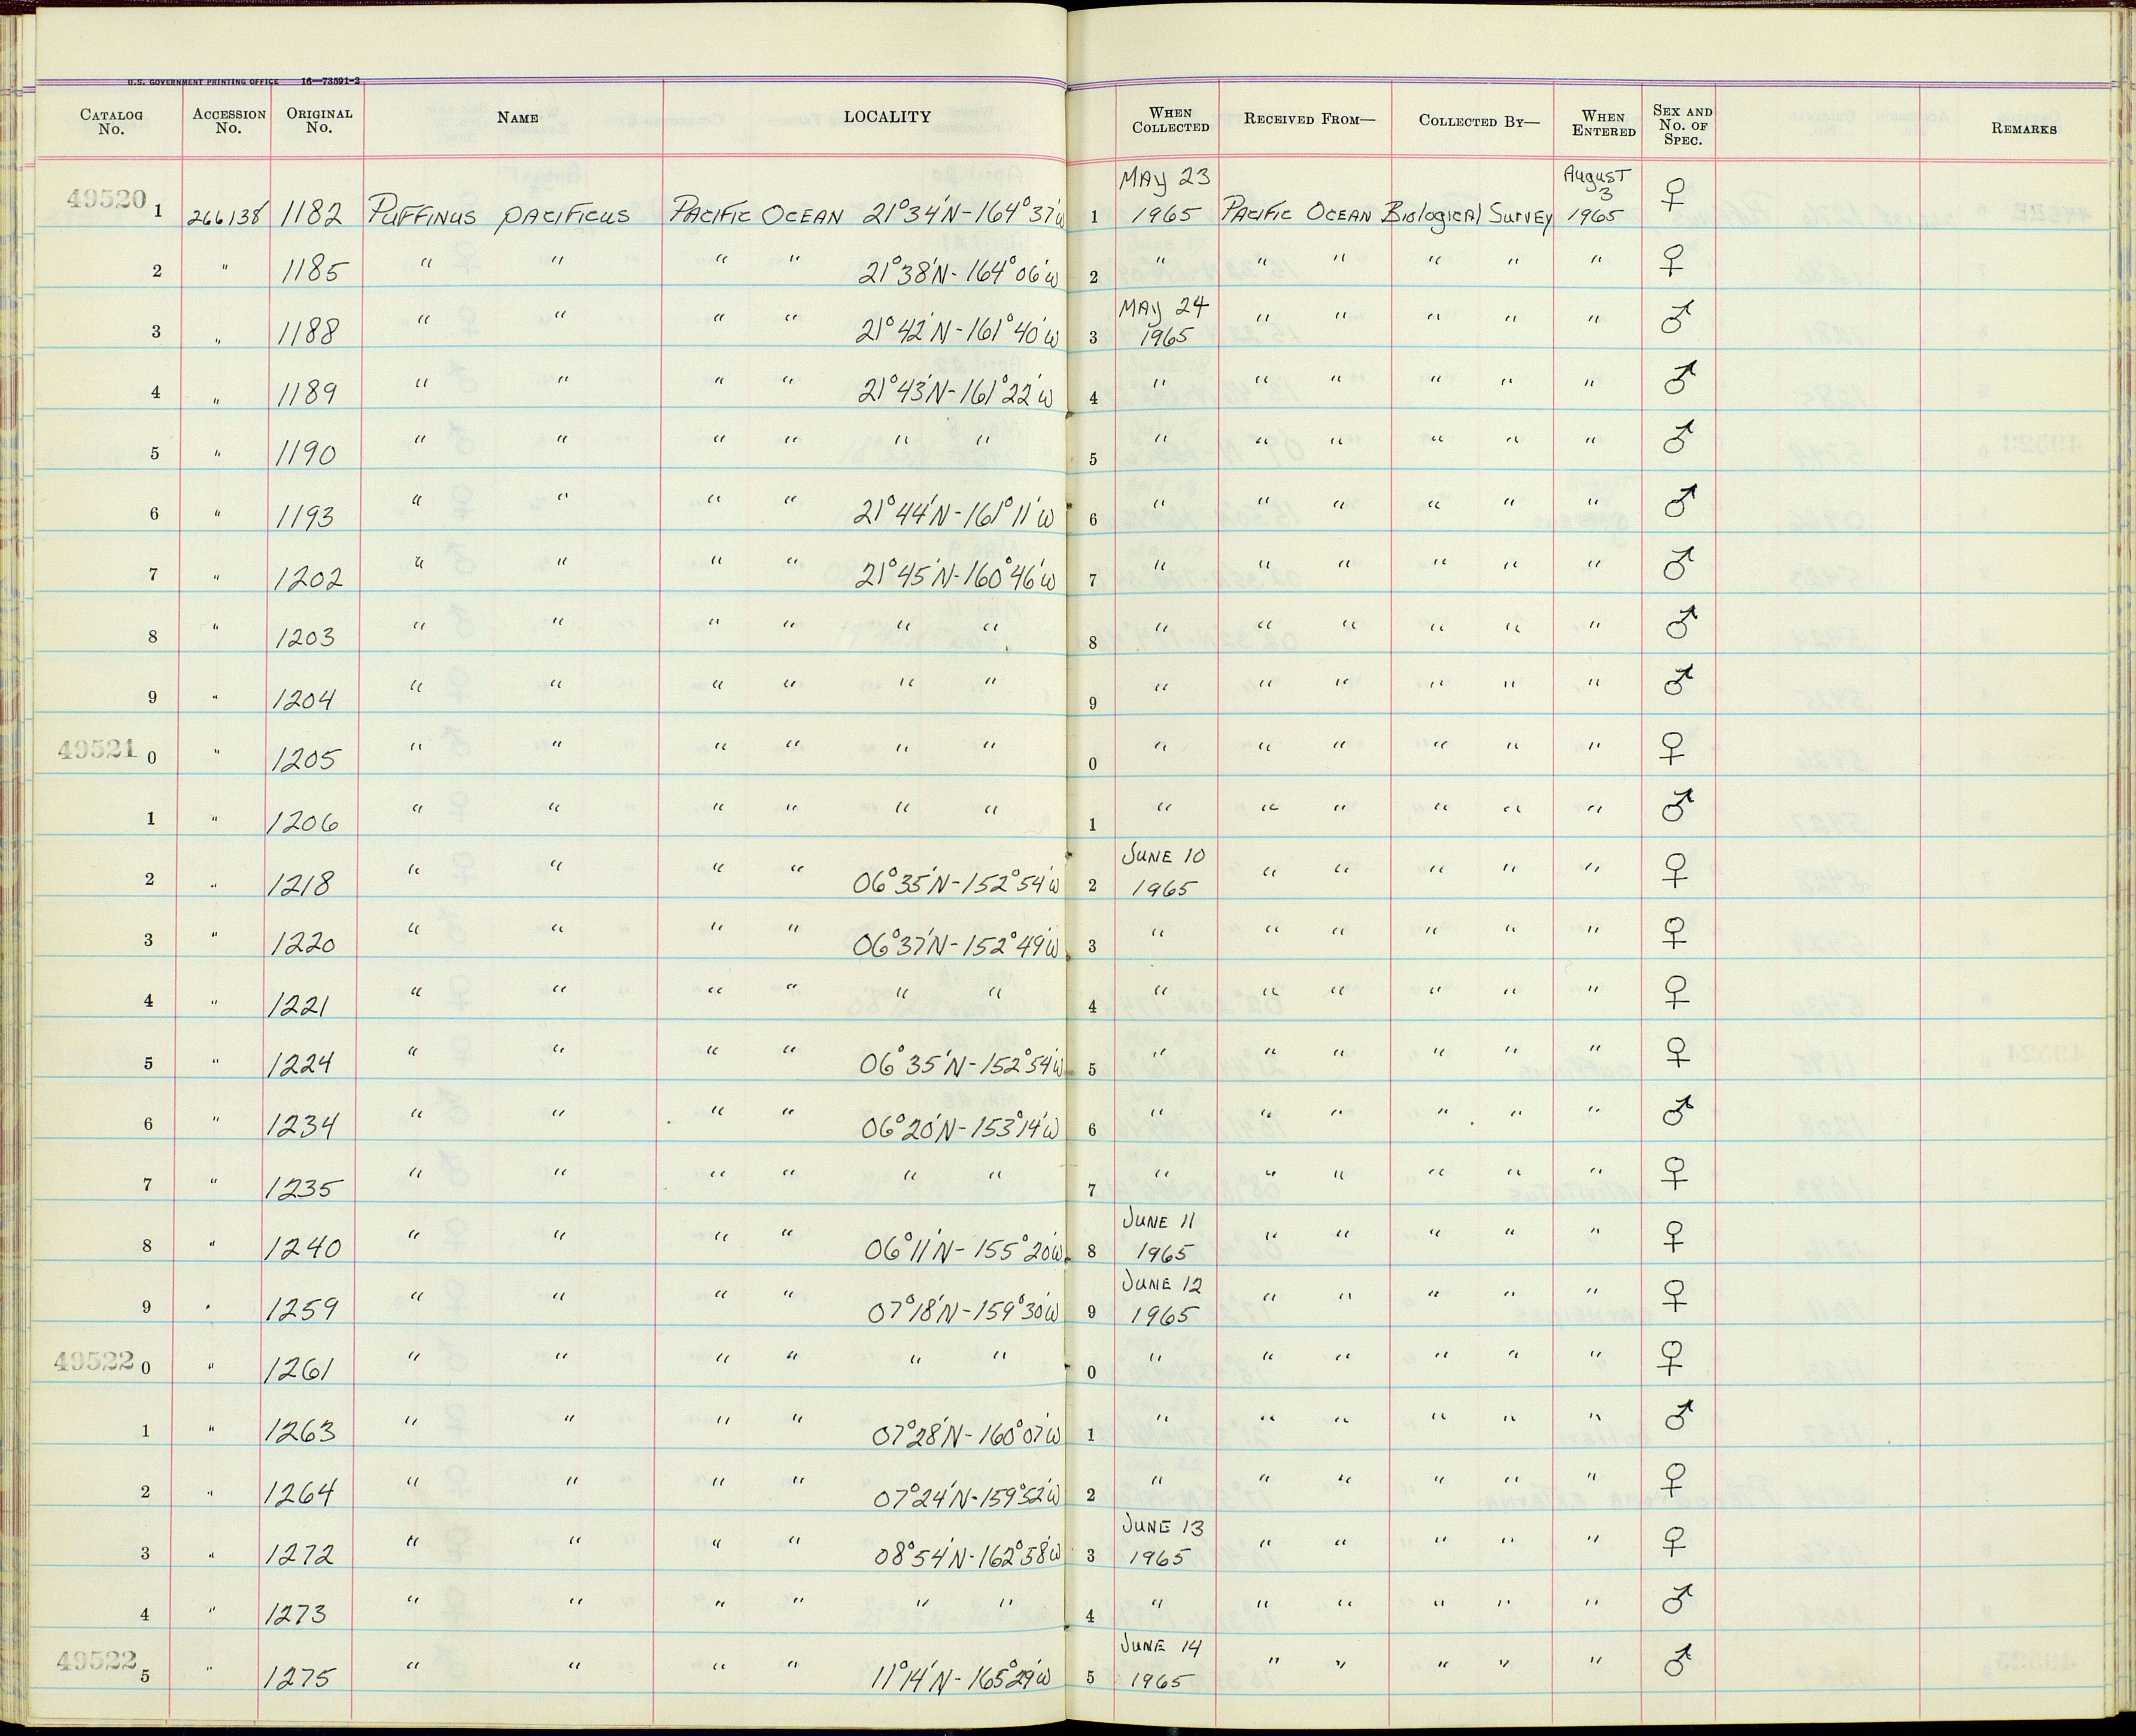 U.S. GOVERNMENT PRINTING OFFICE 16—73591-2
CATALOG No. ACCESSION No. ORIGINAL No. NAME LOCALITY WHEN COLLECTED RECEIVED FROM— COLLECTED BY— WHEN ENTERED SEX AND No. OF SPEC. REMARKS
49520 1 266138 1182 PUFFINUS PACIFICUS PACIFIC OCEAN 21°34'N-164°37'W 1 MAY 23 1965 PACIFIC OCEAN BIOlogICAl SURVEY AUgUST 3 1965 ♀
2 " 1185 " " " " 21°38'N-164°06'W 2 " " " " " " ♀
3 " 1188 " " " " 21°42'N-161°40'W 3 MAY 24 1965 " " " " " ♂
4 " 1189 " " " " 21°43'N-161°22'W 4 " " " " " " ♂
5 " 1190 " " " " " " 5 " " " " " " ♂
6 " 1193 " " " " 21°44'N-161°11'W 6 " " " " " " ♂
7 " 1202 " " " " 21°45'N-160°46'W 7 " " " " " " ♂
8 " 1203 " " " " " " 8 " " " " " " ♂
9 " 1204 " " " " " " 9 " " " " " " ♂
49521 0 " 1205 " " " " " " 0 " " " " " " ♀
1 " 1206 " " " " " " 1 " " " " " " ♂
2 " 1218 " " " " 06°35'N-152°54'W 2 JUNE 10 1965 " " " " " ♀
3 " 1220 " " " " 06°37'N-152°49'W 3 " " " " " " ♀
4 " 1221 " " " " " " 4 " " " " " " ♀
5 " 1224 " " " " 06°35'N-152°54'W 5 " " " " " " ♀
6 " 1234 " " " " 06°20'N-153°14'W 6 " " " " " " ♂
7 " 1235 " " " " " " 7 " " " " " " ♀
8 " 1240 " " " " 06°11'N-155°20'W 8 JUNE 11 1965 " " " " " ♀
9 " 1259 " " " " 07°18'N-159°30'W 9 JUNE 12 1965 " " " " " ♀
49522 0 " 1261 " " " " " " 0 " " " " " " ♀
1 " 1263 " " " " 07°28'N-160°07'W 1 " " " " " " ♂
2 " 1264 " " " " 07°24'N-159°52'W 2 " " " " " " ♀
3 " 1272 " " " " 08°54'N-162°58'W 3 JUNE 13 1965 " " " " " ♀
4 " 1273 " " " " " " 4 " " " " " " ♂
49522 5 " 1275 " " " " 11°14'N-165°29'W 5 JUNE 14 1965 " " " " " ♂